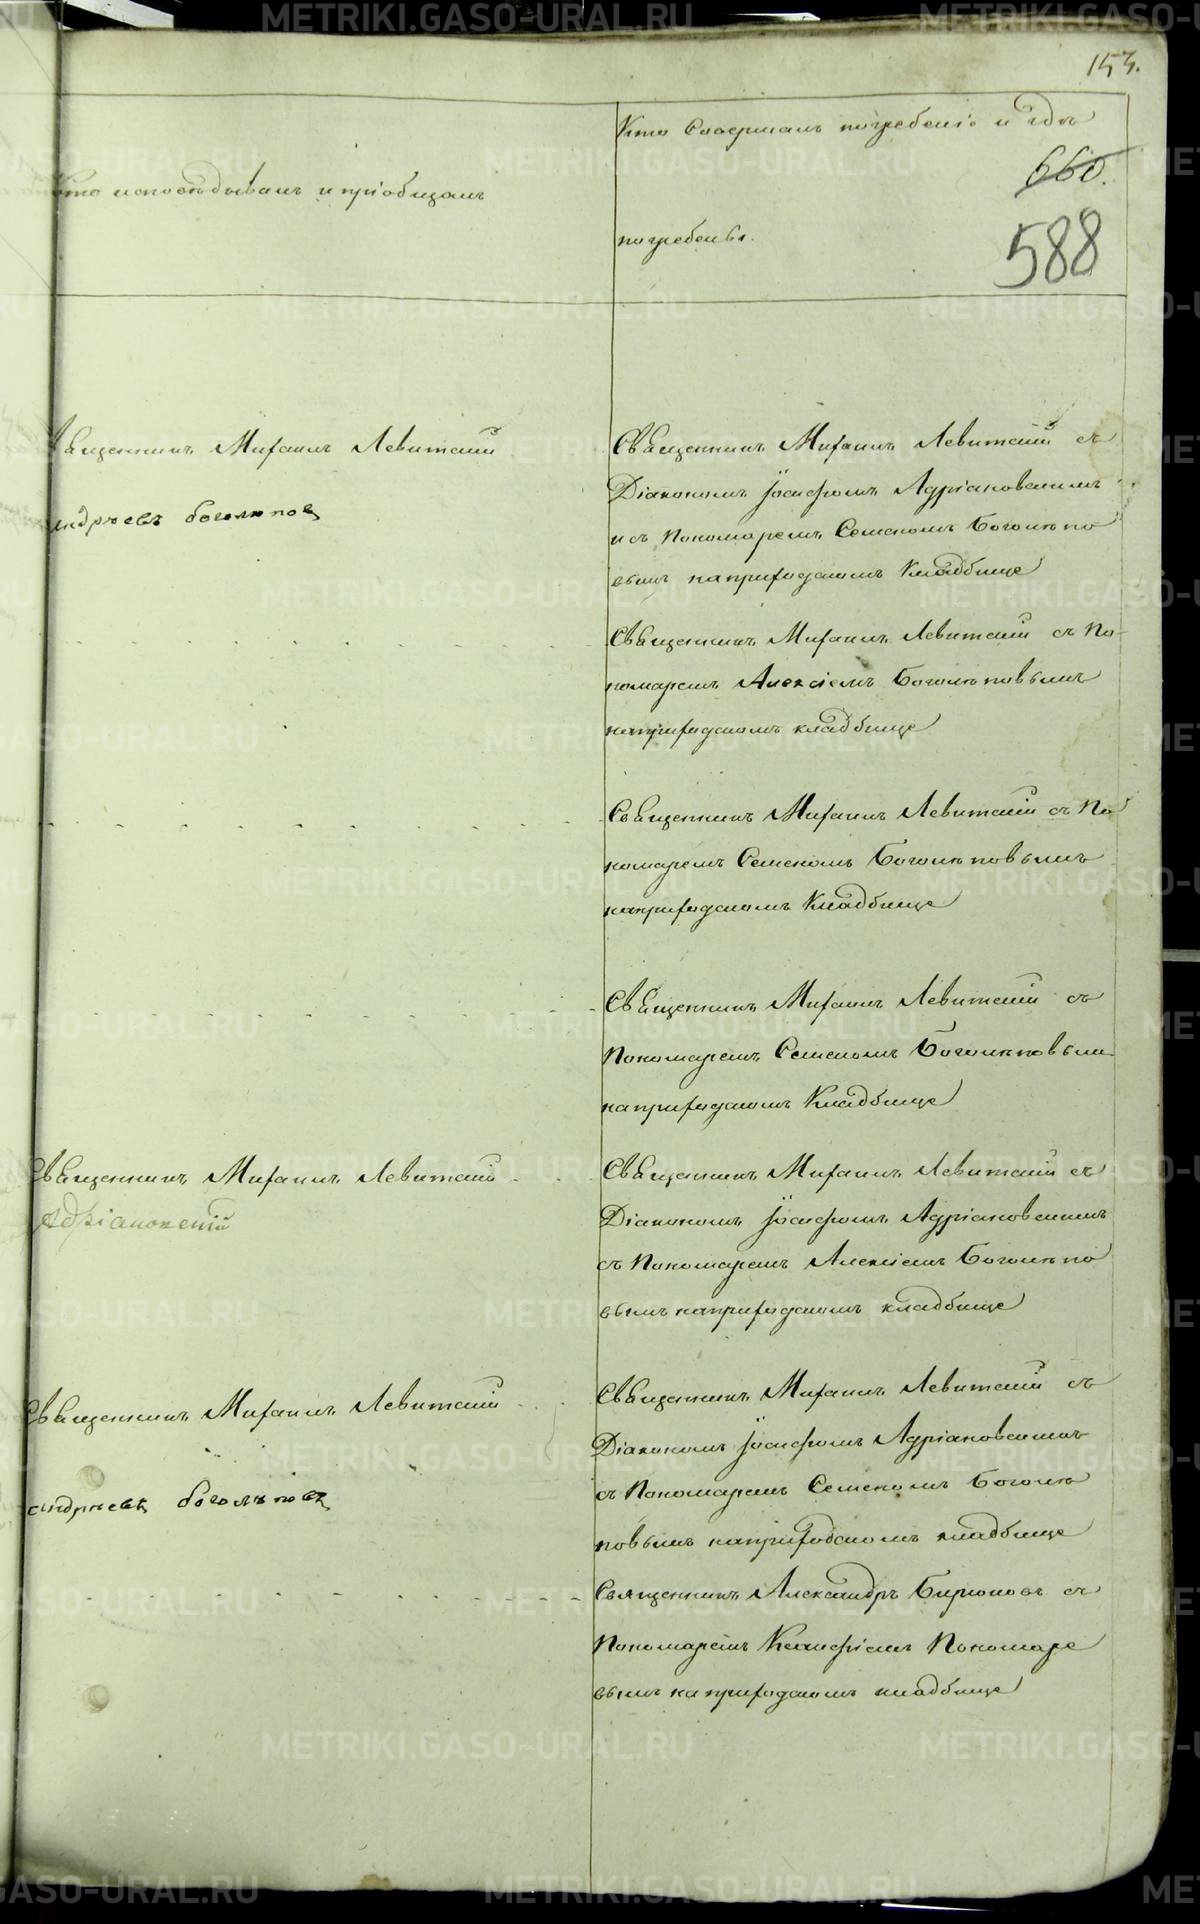 153.
Кто исповѣдывалъ и пріобщалъ
Кто совершалъ погребеніе и гдѣ
660.
погребены.
588
Священникъ Михаилъ Левитскій
андрѣевъ боголѣпов
Священникъ Михаилъ Левитскій съ
Діакономъ Іосифомъ Адріановскимъ
и съ Пономаремъ Семеномъ Боголѣпо
вымъ на приходскомъ Кладбище
Священникъ Михаилъ Левитскій съ По-
номаремъ Алексіемъ Боголѣповымъ
на приходскомъ кладбище
Священникъ Михаилъ Левитскій съ По
номаремъ Семеномъ Боголѣповымъ
на приходскомъ Кладбище
Священникъ Михаилъ Левитскій съ
Пономаремъ Семеномъ Боголѣповым
на приходскомъ Кладбище
Священникъ Михаилъ Левитскій
Адріановскій
Священникъ Михаилъ Левитскій съ
Діакономъ Іосифомъ Адріановскимъ
съ Пономаремъ Алексіемъ Боголѣпо
вымъ на приходскомъ кладбище
Священникъ Михаилъ Левитскій
андрѣевъ боголѣповъ
Священникъ Михаилъ Левитскій съ
Діакономъ Іосифомъ Адріановскимъ
съ Пономаремъ Семеномъ Боголѣ
повымъ на приходскомъ кладбище
Священникъ Александръ Бирюковъ съ
Пономаремъ Пономаре
вымъ на приходскомъ кладбище
METRIKI.GASO-URAL.RU